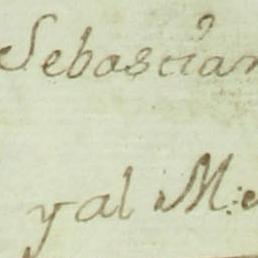 Sebascian
y al M:e